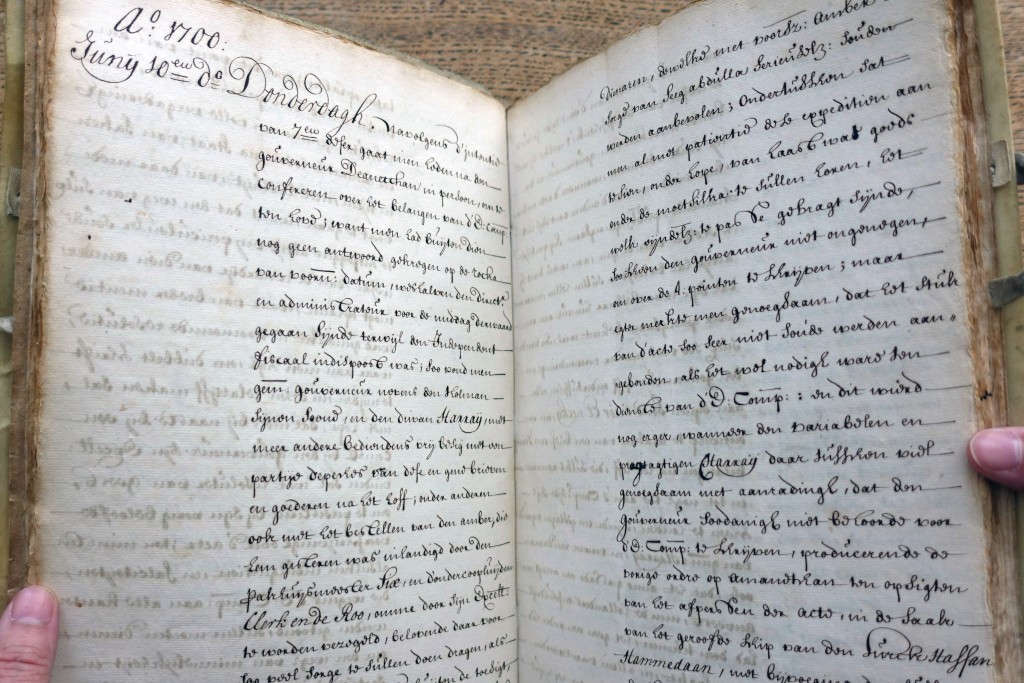 Aº. 1700:
Junij 10en do. Donderdagh. Navolgens d'intentie
van 7en deser gaat men heden na den
gouverneur Deanetchan, in persoon, om te
confereren over het belangen van d'E: Comp
ten hove; want men had buijten dien
nog geen antwoord gekregen op de
van voorn: datum, weshalven den direct
en administrateur voor de middag derwaards
gegaan sijnde terwijl den Independent
fiscaal indispoost was; soo vond men
gem: gouverneur nevens den
sijnen soond, en den divan Harraij, met
meer andere bediendens vrij besig met een
partije depeches van dese en gene brieven
en goederen na het hoff; onder anderen
ook met het bestellen van den amber, die
hem gisteren was inhandigd door den
pakhuijsmeester Six, en d'ondercoopluijden
Clerk en de Roo, omme door sijn Excell:
te worden versegeld, belovende daar voor
soo veel sorge te sullen doen dragen, als
dimaren, dewelke met voorsz: amber
sorge van Seeg abdulla serieuselz: souden
werden aanbevolen; ondertusschen sat
men al met patientie dese expeditien aan
te sien, onder hope, van haast wat goeds
onder de moetsilka: te sullen horen, het
welk eijndelz: te pas se gebragt sijnde,
soo scheen den gouverneur niet ongenegen,
om over de 4: pointen te schrijven; maar
egter merkte men genoegsaam, dat het stuk
van d'acte, soo seer niet soude werden aan=
gebonden, als het wel nodigh ware ten
dienste van d'E: Comp: ; en dit wierd
nog erger, wanneer den variabelen en
Harraij daar tusschen viel
genoegsaam met aanradingh, dat den
gouverneur soodanigh niet beloorde voor
d'E: Comp: te schrijven, producerende de
vorige ordre op Amanethan ten opsigten
van het afperssen der acte, in de saak
van het geroofde schip van den Turck Hassan
Hammedaan, met bijvoeging